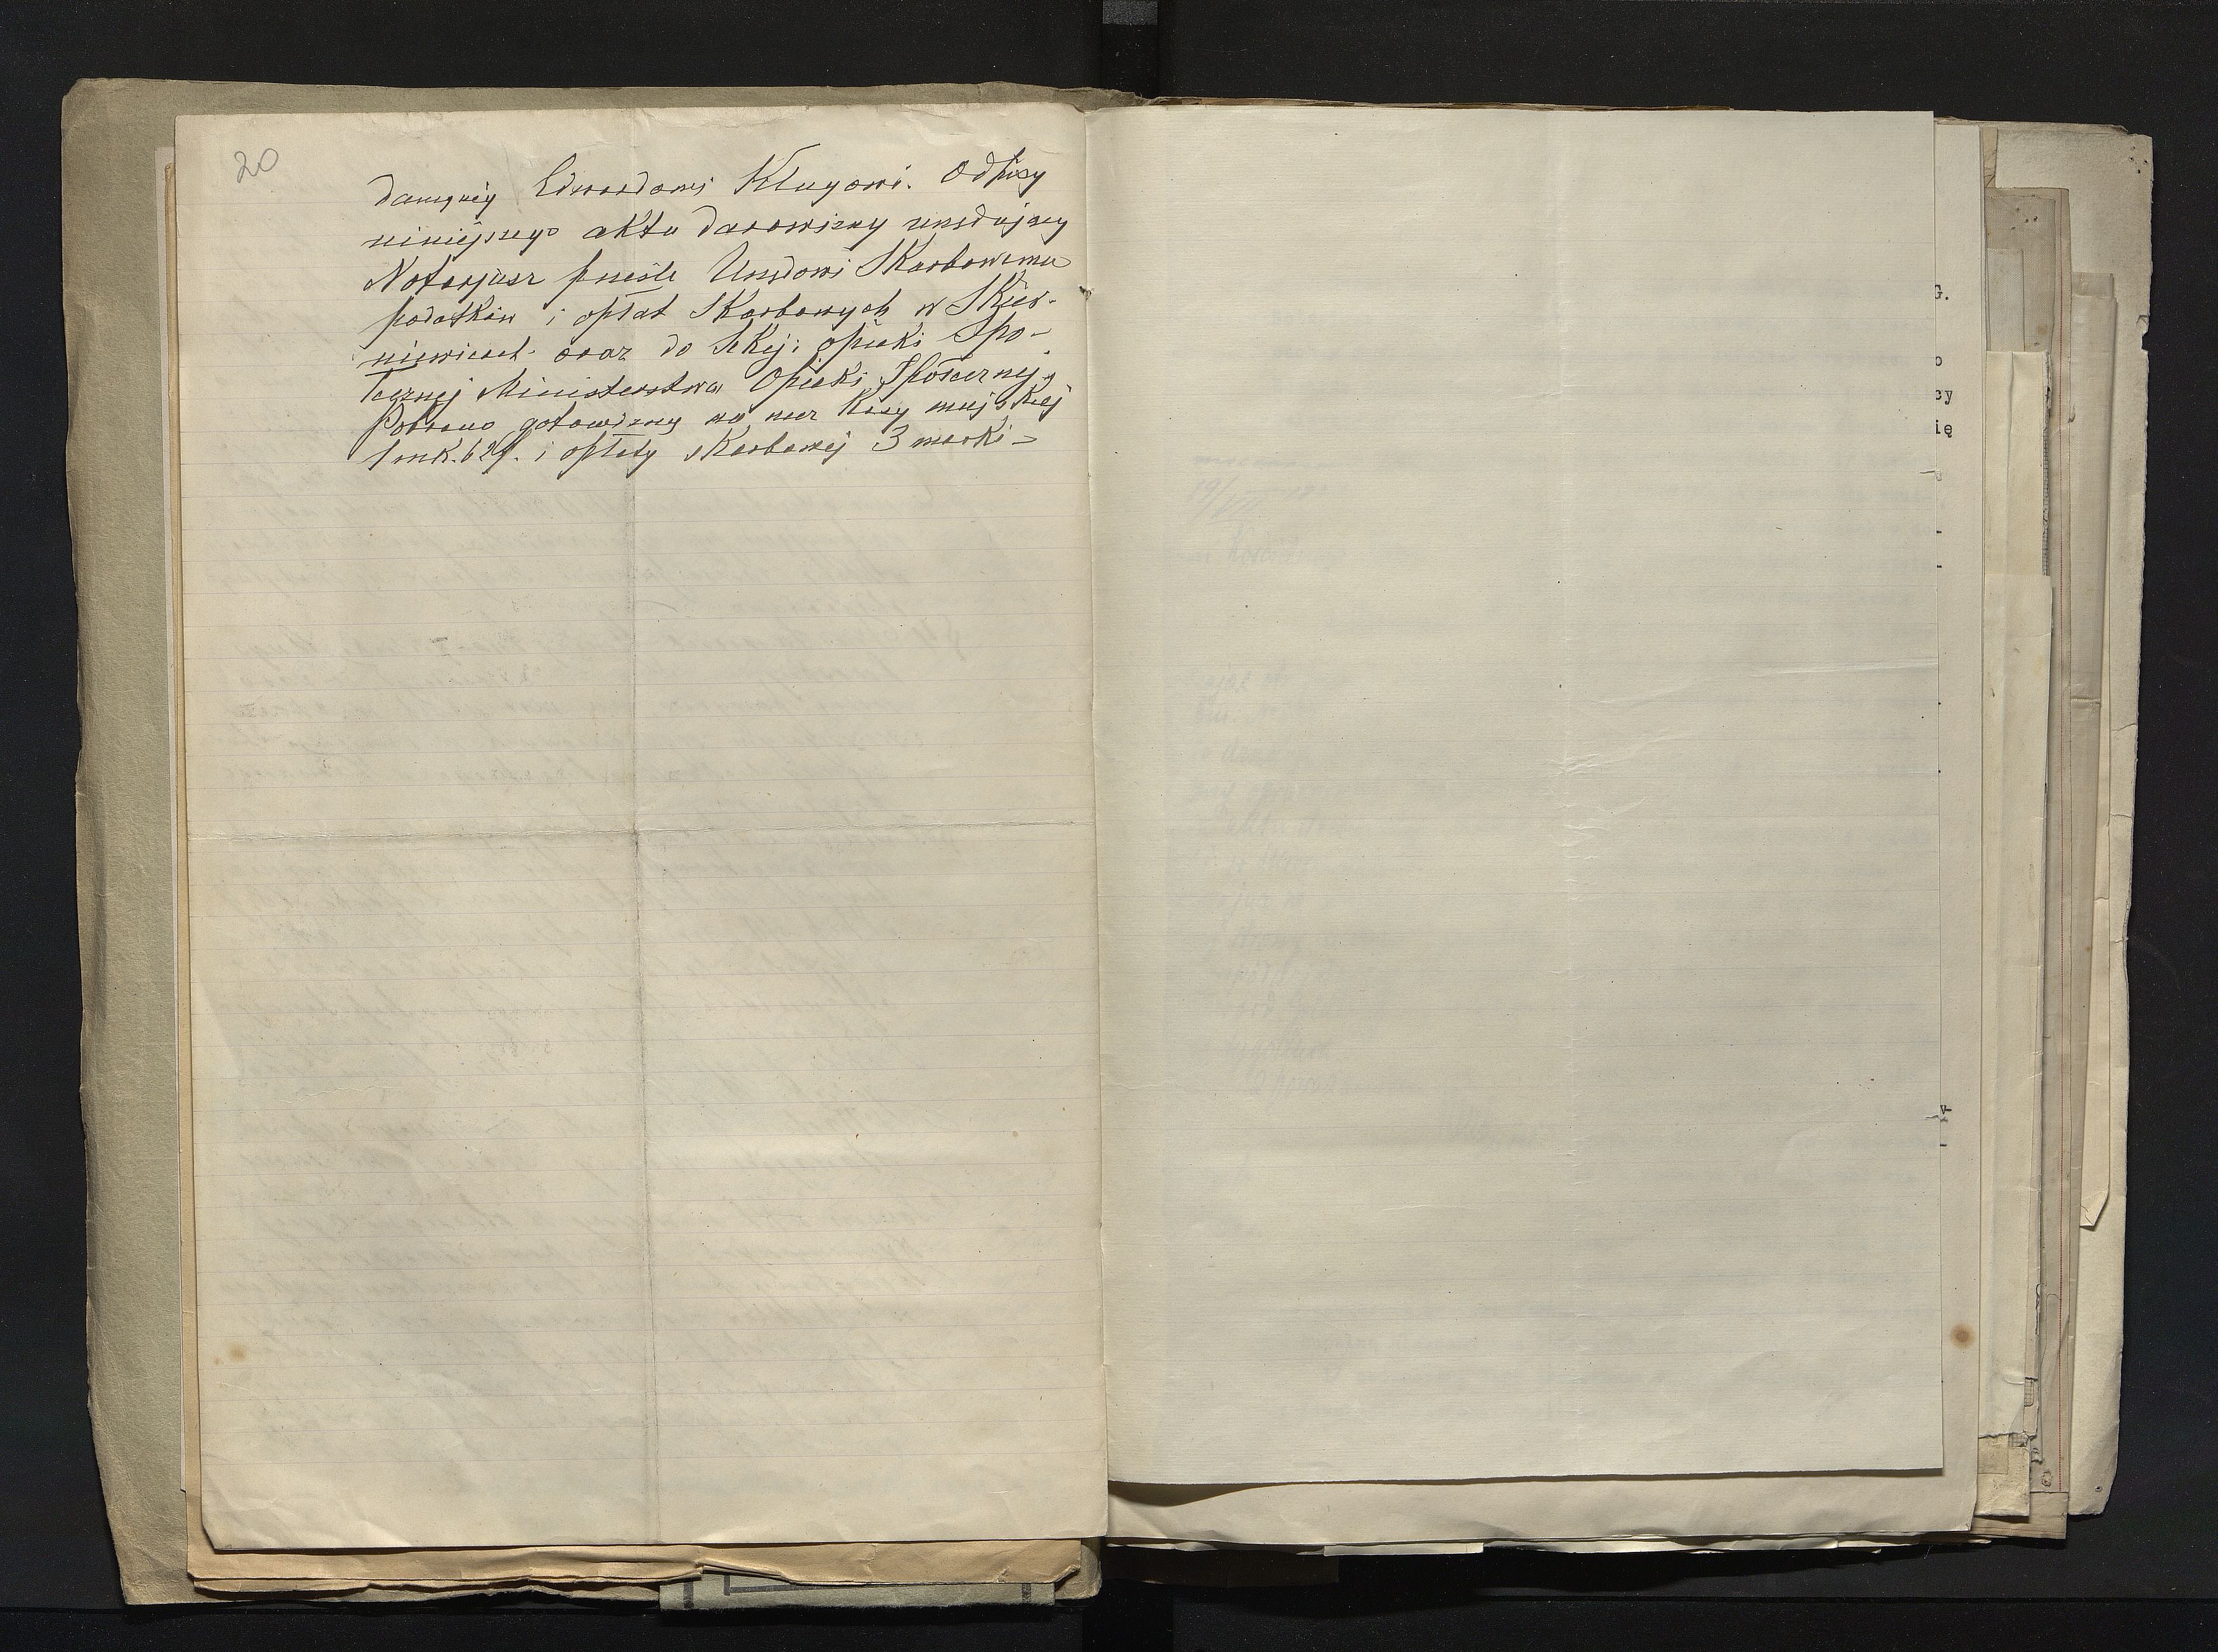 20
Edwardowi Klugowi. Odpisy
niniejszego aktu darowizny urzędujący
Notaryusz prześle Urzędowi Skarbowemu
podatków i opłat Skarbowych w Skier-
niewicach oraz do Sekcji opieki Spo-
łecznej Ministerstwa Opieki Społecznej.
Pobrano gotowizną na rzecz Kasy miejskiej
1 mk. 62 f. i opłaty skarbowej 3 marki -
G.
o
cy
ię